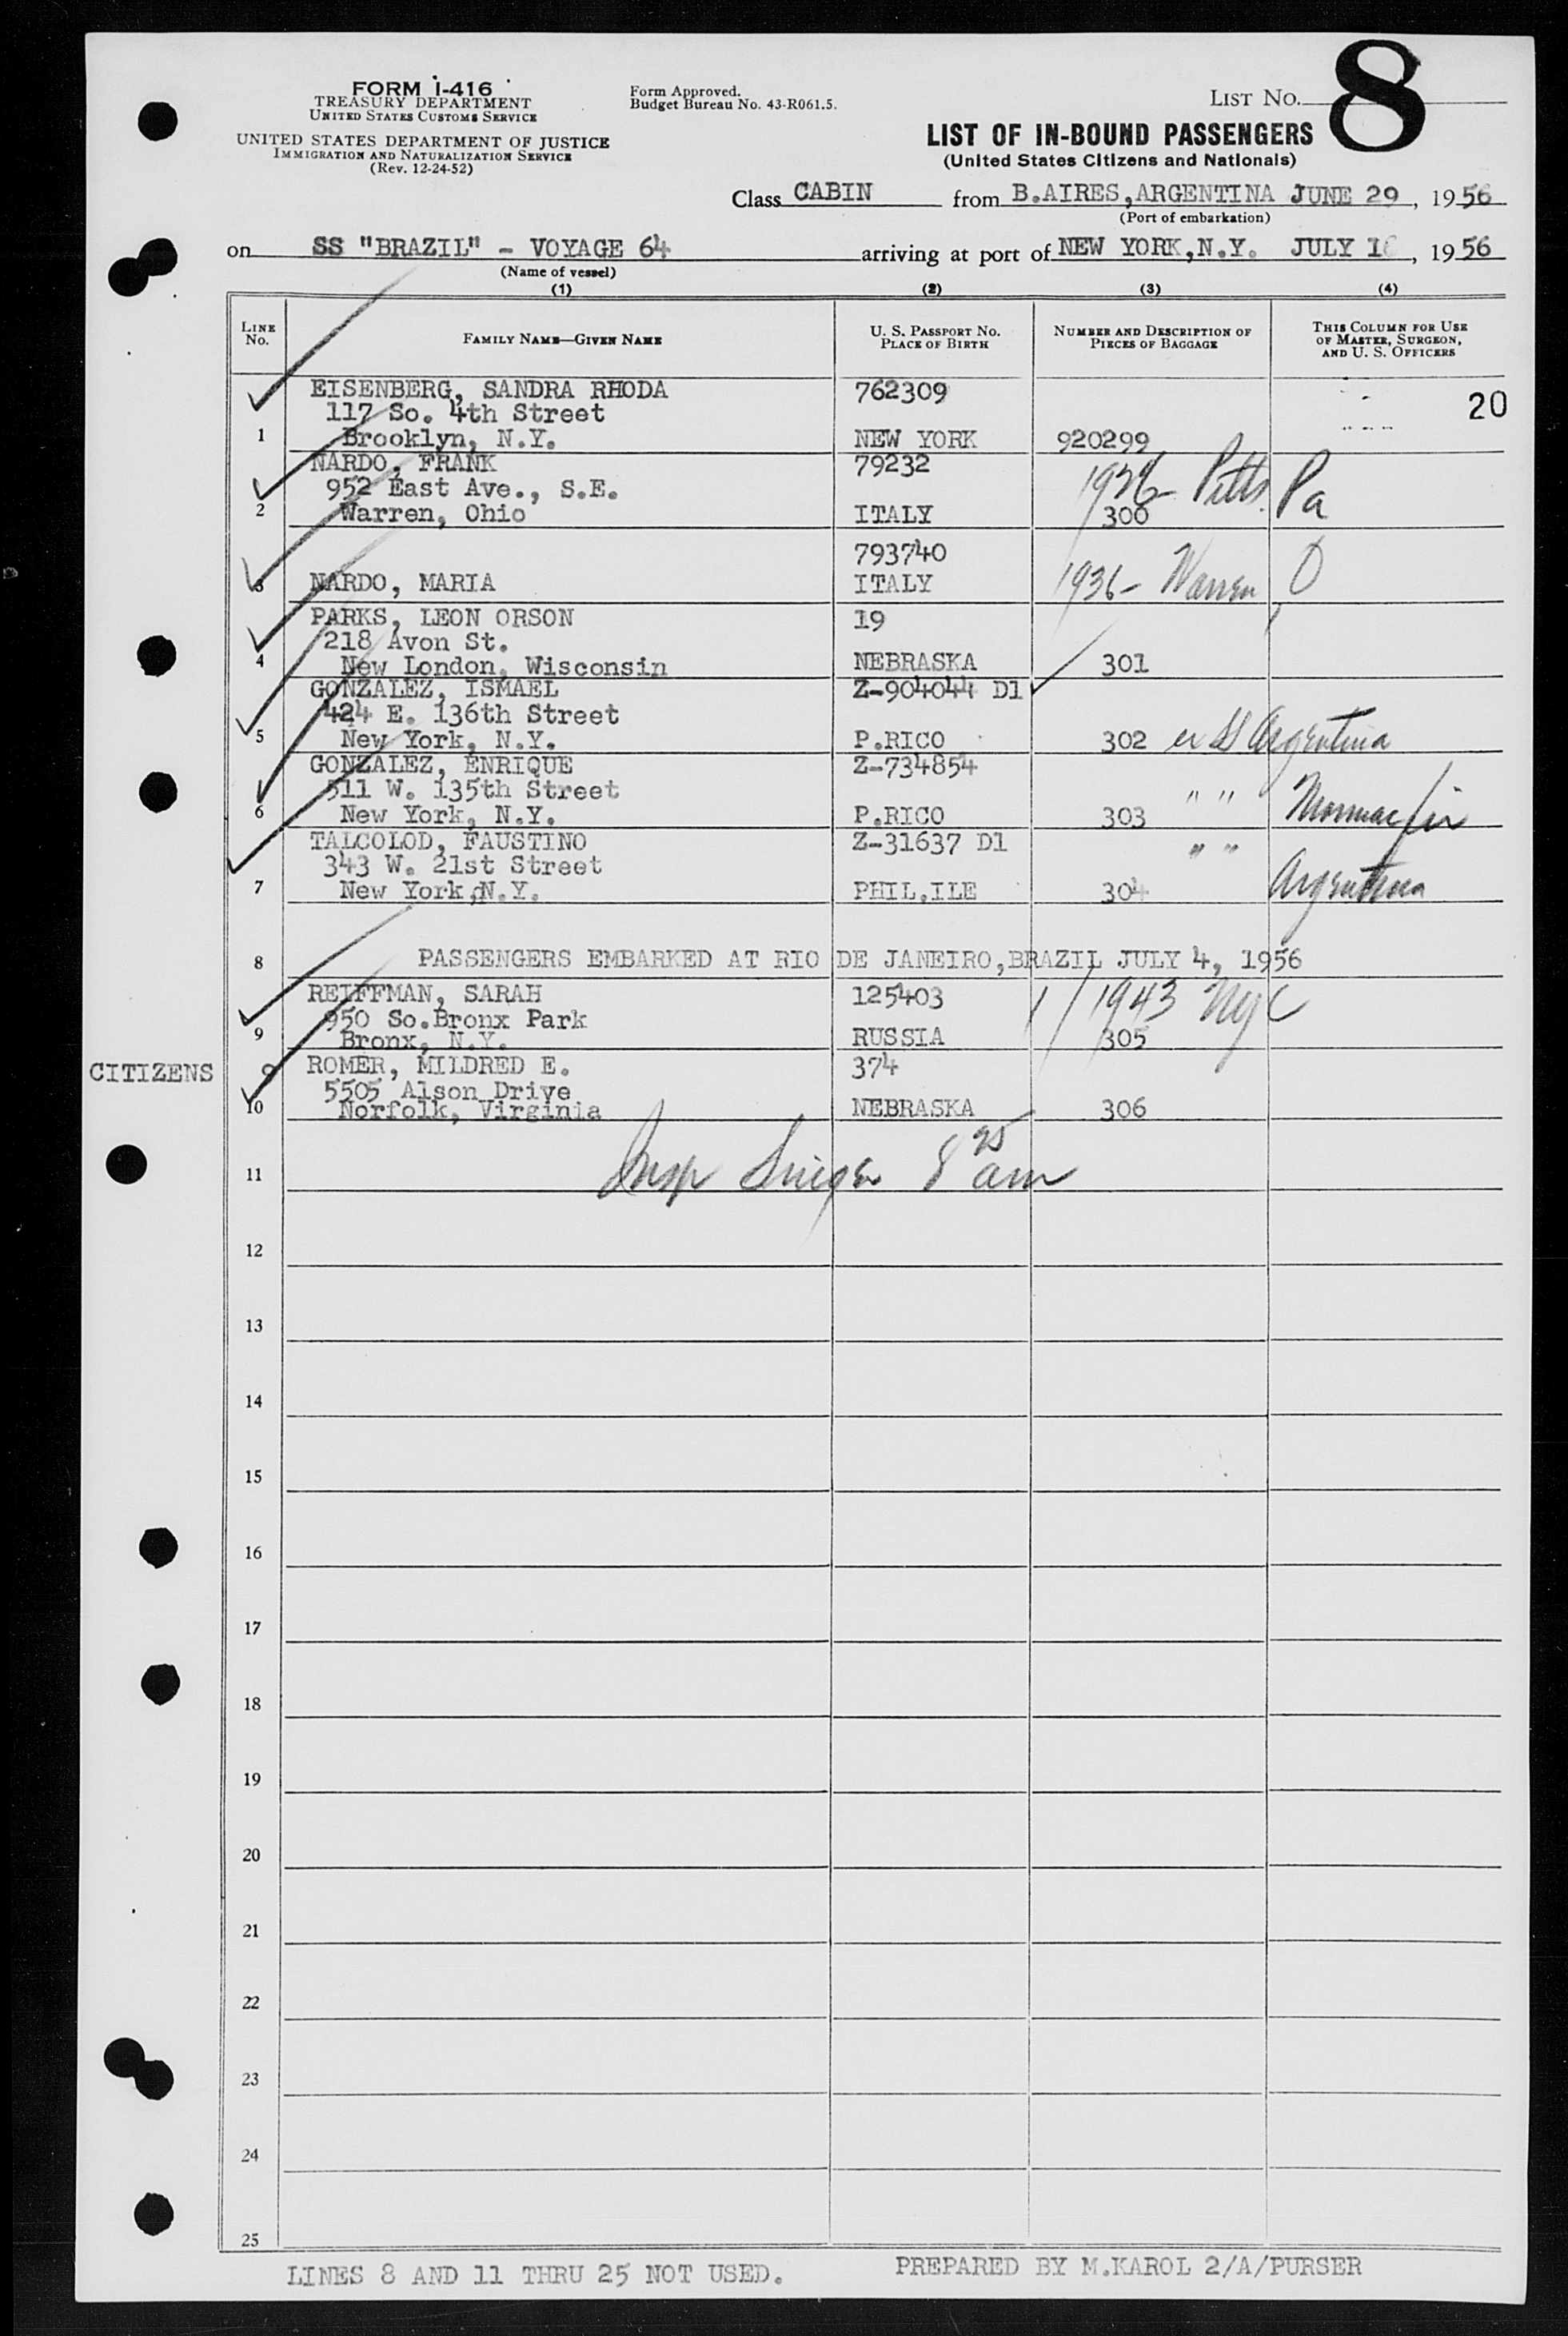 FORM I-416
TREASURY DEPARTMENT
UNITED STATES CUSTOMS SERVICE
UNITED STATES DEPARTMENT OF JUSTICE
IMMIGRATION AND NATURALIZATION SERVICE
(Rev. 12-24-52)
Form Approved.
Budget Bureau No. 43-R061.5.
LIST NO. 8
LIST OF IN-BOUND PASSENGERS
(United States Citizens and Nationals)
Class CABIN from B.AIRES,ARGENTINA JUNE 29, 1956
(Port of embarkation)
on SS "BRAZIL" - VOYAGE 64 arriving at port of NEW YORK,N.Y. JULY 16, 1956
(Name of vessel)
(1) (2) (3) (4)
LINE NO. FAMILY NAME—GIVEN NAME U. S. PASSPORT NO. PLACE OF BIRTH NUMBER AND DESCRIPTION OF PIECES OF BAGGAGE THIS COLUMN FOR USE OF MASTER, SURGEON, AND U. S. OFFICERS
EISENBERG, SANDRA RHODA 762309 20
117 So. 4th Street
1 Brooklyn, N.Y. NEW YORK 920299
NARDO, FRANK 79232
952 East Ave., S.E. Pitts. Pa
2 Warren, Ohio ITALY 300
793740
3 NARDO, MARIA ITALY 1936- Warren O
PARKS, LEON ORSON 19
218 Avon St.
4 New London, Wisconsin NEBRASKA 301
GONZALEZ, ISMAEL Z-904044 D1
424 E. 136th Street
5 New York, N.Y. P.RICO 302 ex SS Argentina
GONZALEZ, ENRIQUE Z-734854
511 W. 135th Street " "
6 New York, N.Y. P.RICO 303 Mormacfir
TALCOLOD, FAUSTINO Z-31637 D1 " "
343 W. 21st Street
7 New York,N.Y. PHIL.ILE 304 Argentina
8 PASSENGERS EMBARKED AT RIO DE JANEIRO,BRAZIL JULY 4, 1956
REIFFMAN, SARAH 125403 1943 NYC
950 So.Bronx Park
9 Bronx, N.Y. RUSSIA 305
CITIZENS 9 ROMER, MILDRED E. 374
5505 Alson Drive
10 Norfolk, Virginia NEBRASKA 306
11 Insp 8 25 am
12
13
14
15
16
17
18
19
20
21
22
23
24
25
LINES 8 AND 11 THRU 25 NOT USED. PREPARED BY M.KAROL 2/A/PURSER